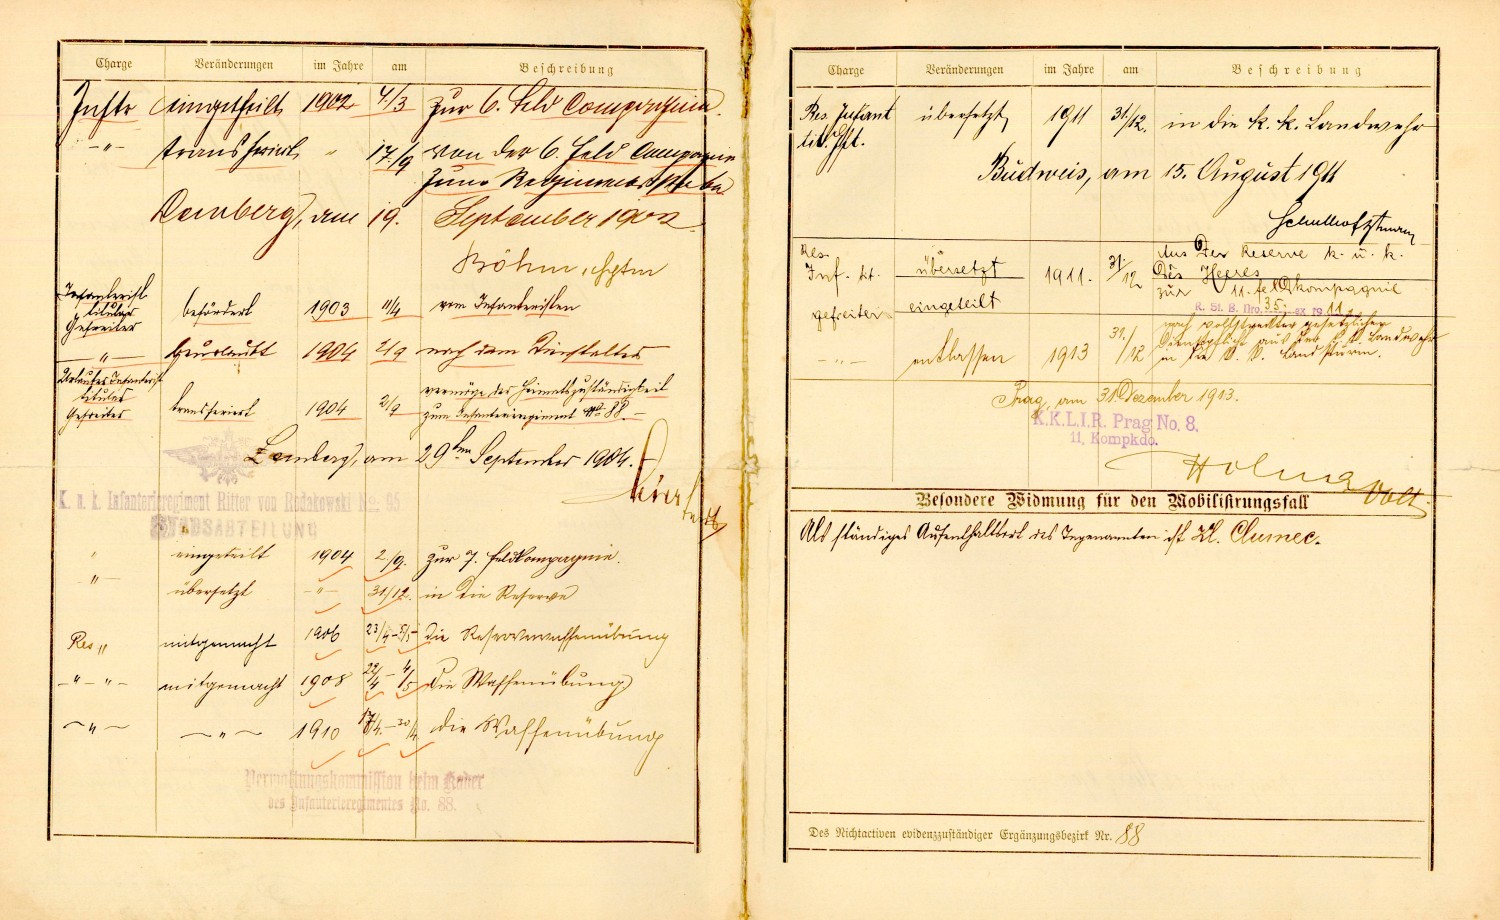 Charge Veränderungen im Jahre am Beschreibung
Inftr eingetheilt 1902 4/3 zur 6. Feld Compagnie.
–"– transferirt " 17/9 von der 6. Feld Compagnie
zum Regiments
Lemberg, am 19. September 1902
Böhm, Hptm
Infanterist
titular
Gefreiter befördert 1903 11/4 vom Infanteristen
–"– beurlaubt 1904 2/9 nach dem
Urlauber Infanterist
titular
Gefreiter transferiert 1904 2/9 vermöge der Heimatszuständigkeit
zum Infanterieregiment No 88.–
Lemberg, am 29ten September 1904.
K. u. k. Infanterieregiment Ritter von Rodakowski No 95
" eingeteilt 1904 2./9. zur 7. Feldkompagnie.
"– übersetzt –"– 31/12. in die Reserve
Res " mitgemacht 1906 23/4–5/5 die Reservewaffenübung
–"–"– mitgemacht 1908 22/4–4/5 die Waffenübung
–"– –"– 1910 17/4.–30/4. die Waffenübung
Verwaltungskommission beim Kader
des Infanterieregimentes No. 88.
Charge Veränderungen im Jahre am Beschreibung
Res. Infant
tit. Gft. übersetzt 1911 31/12. in die k. k. Landwehr
Budweis, am 15. August 1911
Res.
Inf. tit. übersetzt 1911. 31./12 Aus der Reserve k. u. k.
des Heeres
gefreiter eingeteilt zur 11. feldkompagnie
K. St. B. Nro. 35. ex 1911
–"– entlassen 1913 31./12 nach vollstreckter gesetzlicher
Dienstpflicht aus der k. k. Landwehr
in die k. k. Landsturm.
Prag, am 31 Dezember 1913.
K.K.L.I.R. Prag No. 8.
11. Kompkdo.
Besondere Widmung für den Mobilisirungsfall
Als ständiges Aufenthaltsort des Ingenannten ist Kl. Clumec.
Des Nichtactiven evidenzzuständiger Ergänzungsbezirk Nr. 88